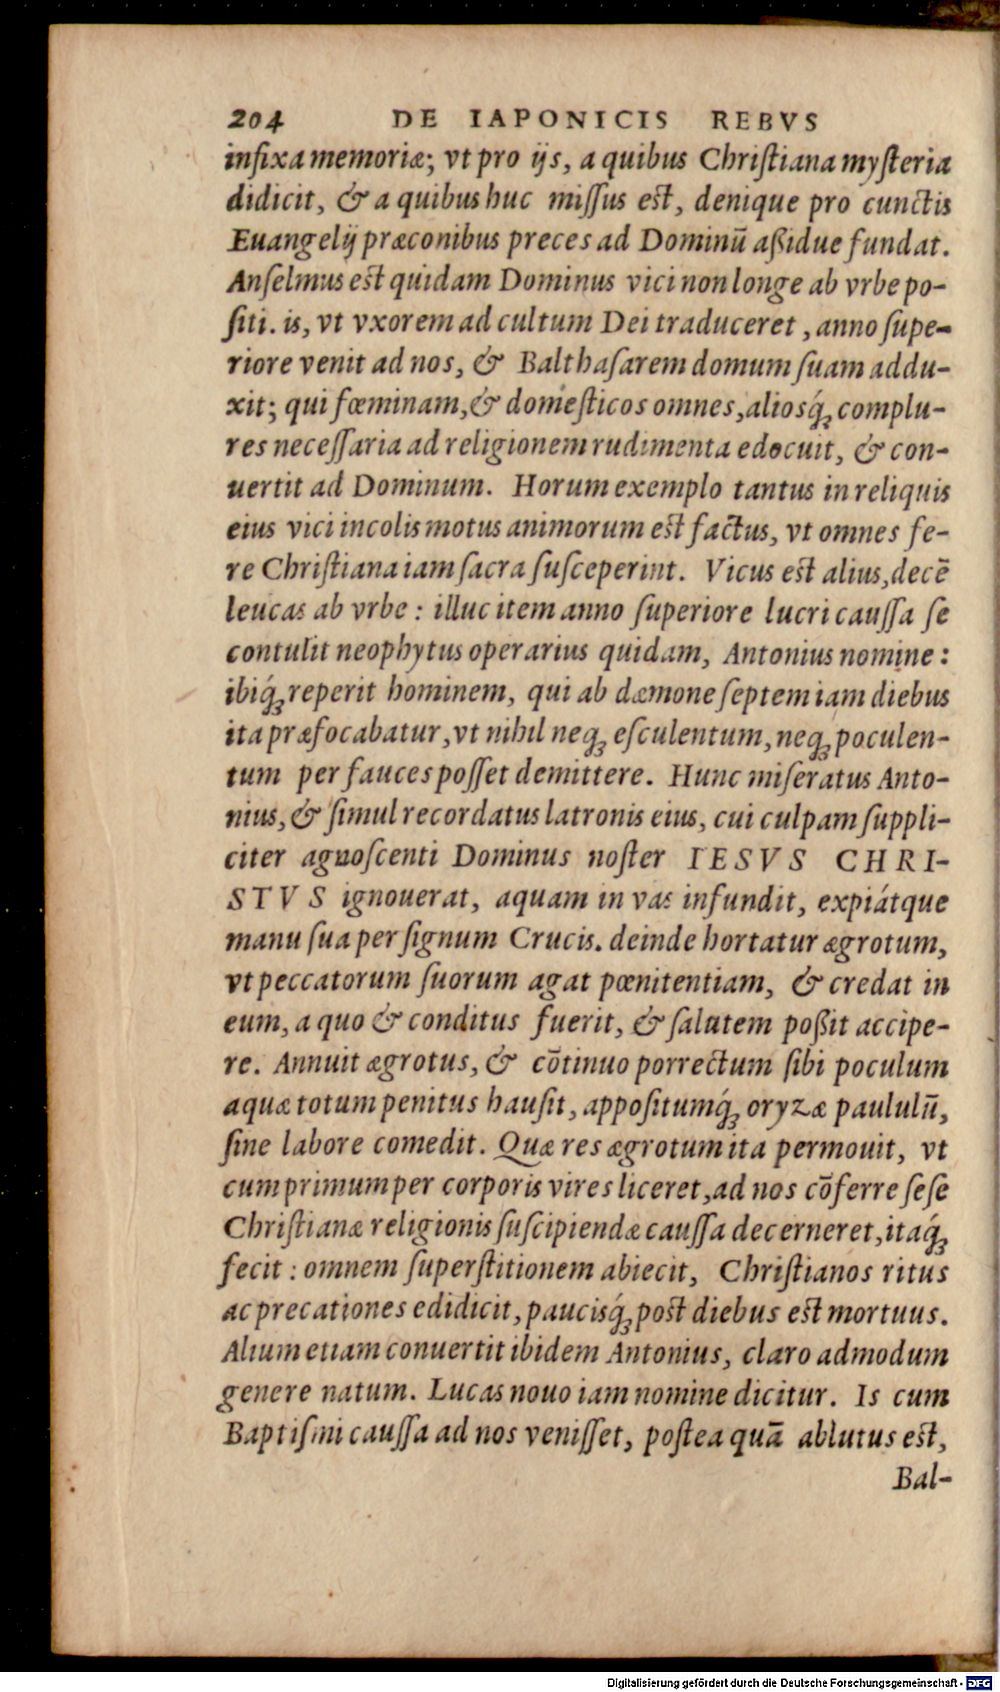 204 DE IAPONICIS REBVS
infixa memoriæ; vt pro ijs, a quibus Chriſtiana myſteria
didicit, & a quibus huc miſſus eſt, denique pro cunctis
Euangelij præconibus preces ad Dominū aßidue fundat.
Anſelmus eſt quidam Dominus vici non longe ab vrbe po-
ſiti. is, vt vxorem ad cultum Dei traduceret, anno ſupe-
riore venit ad nos, & Balthaſarem domum ſuam addu-
xit; qui fœminam, & domeſticos omnes, aliosq́; complu-
res neceſſaria ad religionem rudimenta edocuit, & con-
uertit ad Dominum. Horum exemplo tantus in reliquis
eius vici incolis motus animorum eſt factus, vt omnes fe-
re Chriſtiana iam ſacra ſuſceperint. Vicus eſt alius, decē
leucas ab vrbe: illuc item anno ſuperiore lucri cauſſa ſe
contulit neophytus operarius quidam, Antonius nomine:
ibiq́; reperit hominem, qui ab dæmone ſeptem iam diebus
ita præfocabatur, vt nihil neq; eſculentum, neq; poculen-
tum per fauces poſſet demittere. Hunc miſeratus Anto-
nius, & ſimul recordatus latronis eius, cui culpam ſuppli-
citer agnoſcenti Dominus noſter IESVS CHRI-
STVS ignouerat, aquam in vas infundit, expiátque
manu ſua per ſignum Crucis. deinde hortatur ægrotum,
vt peccatorum ſuorum agat pœnitentiam, & credat in
eum, a quo & conditus fuerit, & ſalutem poßit accipe-
re. Annuit ægrotus, & cōtinuo porrectum ſibi poculum
aquæ totum penitus hauſit, appoſitumq́; oryzæ paululū,
ſine labore comedit. Quæ res ægrotum ita permouit, vt
cum primum per corporis vires liceret, ad nos cōferre ſeſe
Chriſtianæ religionis ſuſcipiendæ cauſſa decerneret, itaq́;
fecit: omnem ſuperſtitionem abiecit, Chriſtianos ritus
ac precationes edidicit, paucisq́; poſt diebus eſt mortuus.
Alium etiam conuertit ibidem Antonius, claro admodum
genere natum. Lucas nouo iam nomine dicitur. Is cum
Baptiſmi cauſſa ad nos veniſſet, poſtea quā ablutus eſt,
Bal-
Digitalisierung gefördert durch die Deutsche Forschungsgemeinschaft - DFG